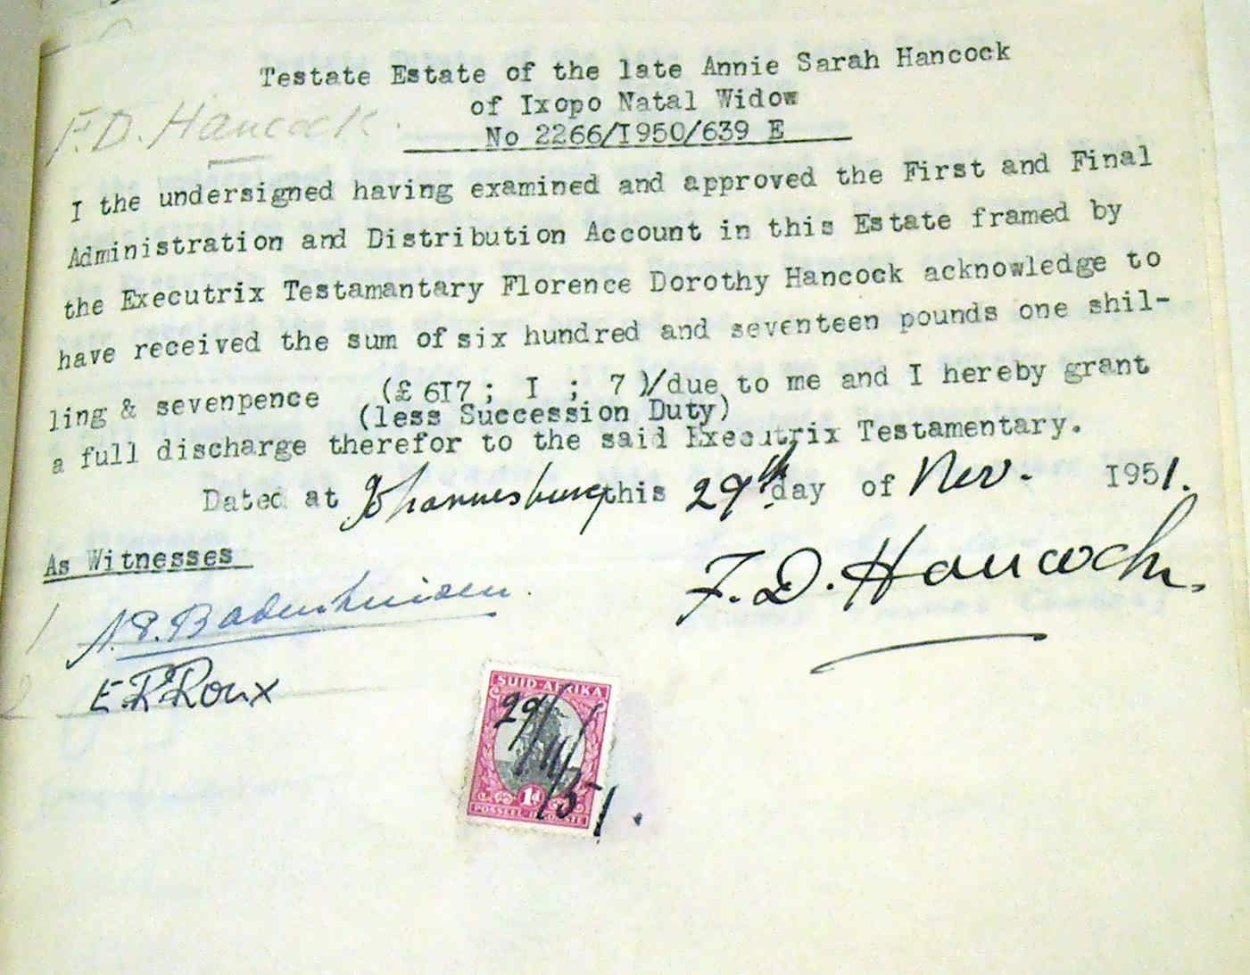 Testate Estate of the late Annie Sarah Hancock
of Ixopo Natal Widow
F.D. Hancock.
No 2266/I950/639 E
I the undersigned having examined and approved the First and Final
Administration and Distribution Account in this Estate framed by
the Executrix Testamantary Florence Dorothy Hancock acknowledge to
have received the sum of six hundred and seventeen pounds one shil-
ling & sevenpence (£ 6I7 ; I ; 7 )/due to me and I hereby grant
(less Succession Duty)
a full discharge therefor to the said Executrix Testamentary.
Dated at Johannesburg this 29th day of Nov. I951.
As Witnesses
F.D. Hancock.
1 Badenhuizen.
2 E Roux
SUID-AFRIKA
29/11/51.
1d
POSSEEL-INKOMSTE